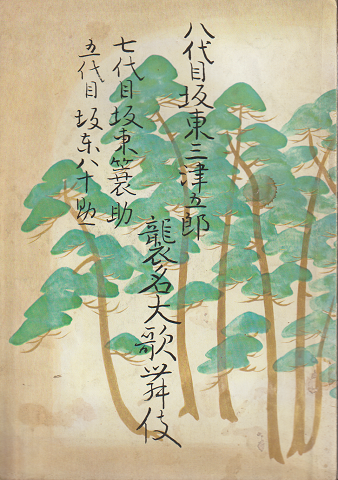 八代目坂東三津五郎
七代目坂東簑助
五代目坂东八十助
襲名大歌舞伎